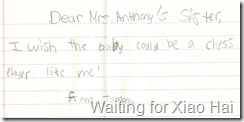 Dear Mrs. Anthony's Sister,
I wish the baby could be a chess
player like me!
From,
Waiting for Xiao Hai